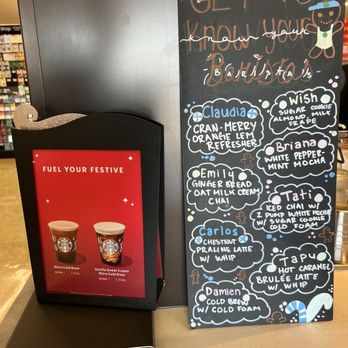 Shop
FUEL YOUR FESTIVE
Nitro Cold Brew
Vanilla Sweet Cream
Nitro Cold Brew
GET TO
KNOW YOUR
know your
Baristas
BARISTAS
Claudia
CRAN-MERRY
ORANGE LEM
REFRESHER
Emily
GINGERBREAD
OAT MILK CREAM
CHAI
Carlos
CHESTNUT
PRALINE LATTE
W/ WHIP
Damien
COLD BREW
W/ COLD FOAM
Wish
SUGAR COOKIE
ALMOND MILK
FRAPE
Briana
WHITE PEPPER-
MINT MOCHA
Tati
ICED CHAI W/
2 PUMP WHITE MOCHA
W/ SUGAR COOKIE
COLD FOAM
TAPU
HOT CARAMEL
BRULÉE LATTE
W/ WHIP